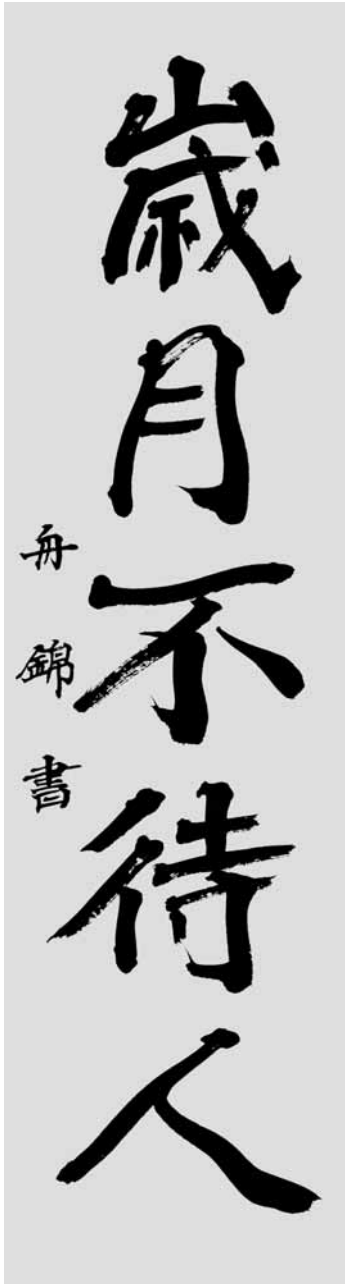 歳月不待人
舟錦書